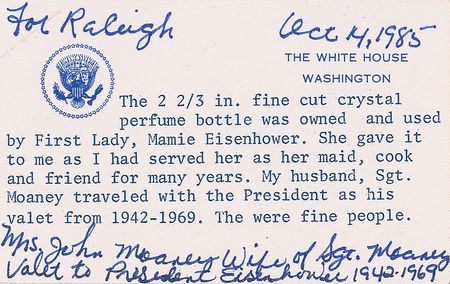 For Raleigh
Oct 14, 1985
THE WHITE HOUSE
WASHINGTON
The 2 2/3 in. fine cut crystal
perfume bottle was owned and used
by First Lady, Mamie Eisenhower. She gave it
to me as I had served her as her maid, cook
and friend for many years. My husband, Sgt.
Moaney traveled with the President as his
valet from 1942-1969. The were fine people.
Mrs. John Moaney Wife of Sgt. Moaney
Valet to President Eisenhower 1942-1969